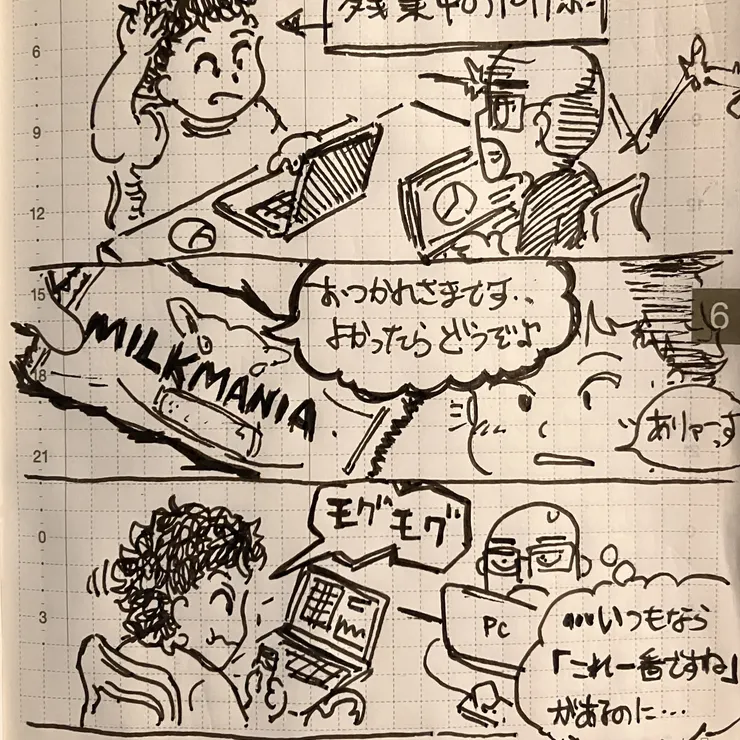 残業中の
6
9
12
おつかれさまです..
よかったらどうでよ
MILKMANIA
ありゃーっす
15
18
21
6
モグモグ
PC
...いつもなら
「これ一番ですね」
があるのに...
0
3